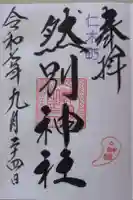 奉拝
仁木町
然別神社
令和六年九月二十四日